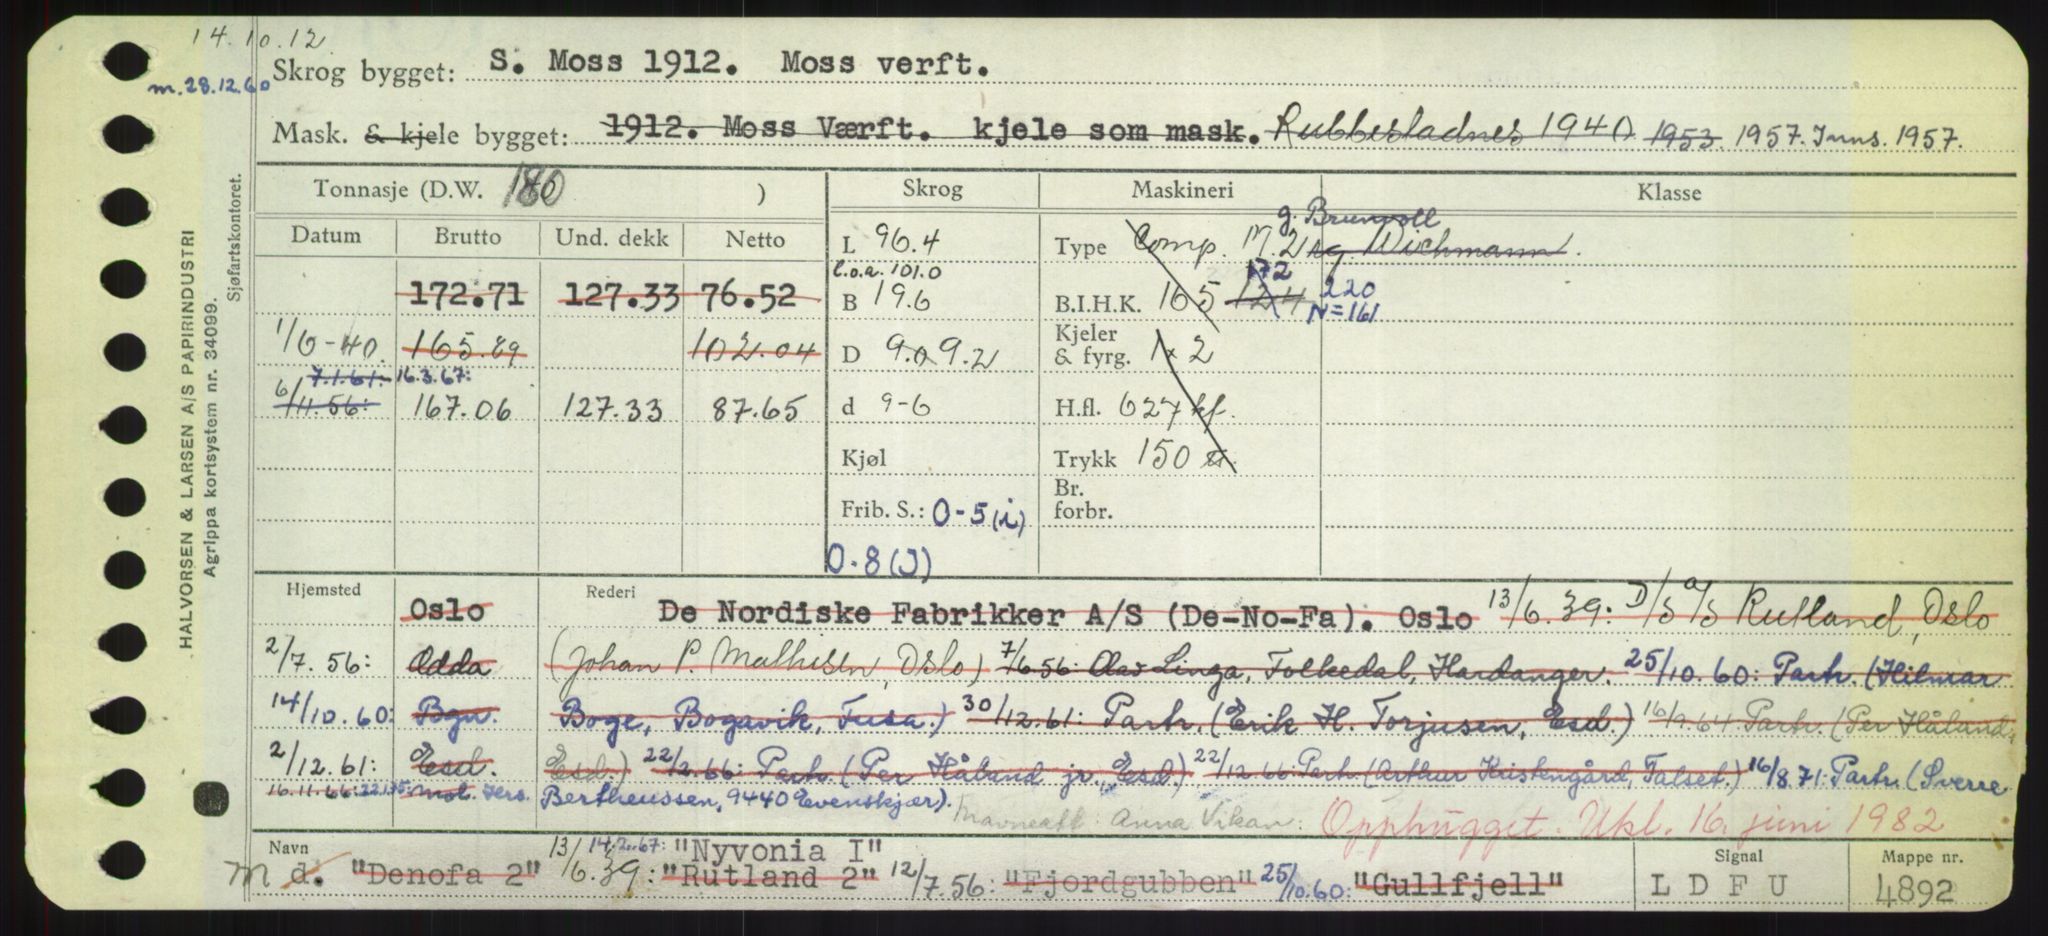 14.10.12.
Skrog bygget: S. Moss 1912. Moss verft.
m. 28.12.60
Mask. & kjele bygget: 1912. Moss Værft. kjele som mask. Rubbestadnes 1940 1953 1957. Inns. 1957.
Tonnasje (D.W. 180 ) Skrog Maskineri Klasse
Datum Brutto Und. dekk Netto
L 96.4
Type Comp. M. 2 sg. Wichmann.
g. Brunvoll
l.o.a. 101.0
172.71 127.33 76.52
B 19.6
B.I.H.K. 165 124 172 220
N=161
1/6-40. 165.89 102.04
D 9.0 9.2
Kjeler & fyrg. 1 x 2
7.1.61. 16.3.67:
6/11.56: 167.06 127.33 87.65
d 9-6
H.fl. 627 kf.
Kjøl
Trykk 150
Frib. S.: 0-5 (i)
Br. forbr.
0.8 (J)
Hjemsted Oslo Rederi De Nordiske Fabrikker A/S (De-No-Fa). Oslo 13/6.39: D/S A/S Rutland, Oslo
2/7.56: Odda (Johan P. Mathisen, Oslo) 7/6 56: Olav Linga, Folkedal, Hardanger. 25/10.60: Partr. (Hilmar
14/10.60: Bgn. Boge, Bogavik, Fusa.) 30/12.61: Partr. (Erik H. Torjusen, Esd.) 16/9.64 Partr. (Per Håland,
2/12.61: Esd. Esd.) 22/2.66: Partr. (Per Håland jr., Esd.) 22/12.66: Partr. (Arthur Kristengård, Talset.) 16/8 71: Partr. (Sverre
16.11.66: 22.1.75: Mol. Bertheussen, 9440 Evenskjær). Navneatt: Anna Vikan. Opphugget. Ukl. 16. juni 1982
Navn 13/6.39: 14.2.67: "Nyvonia I" Signal Mappe nr.
M d. "Denofa 2" "Rutland 2" 12/7.56: "Fjordgubben" 25/10.60: "Gullfjell" L D F U 4892
HALVORSEN & LARSEN A/S PAPIRINDUSTRI
Agrippa kortsystem nr. 34099.
Sjøfartskontoret.